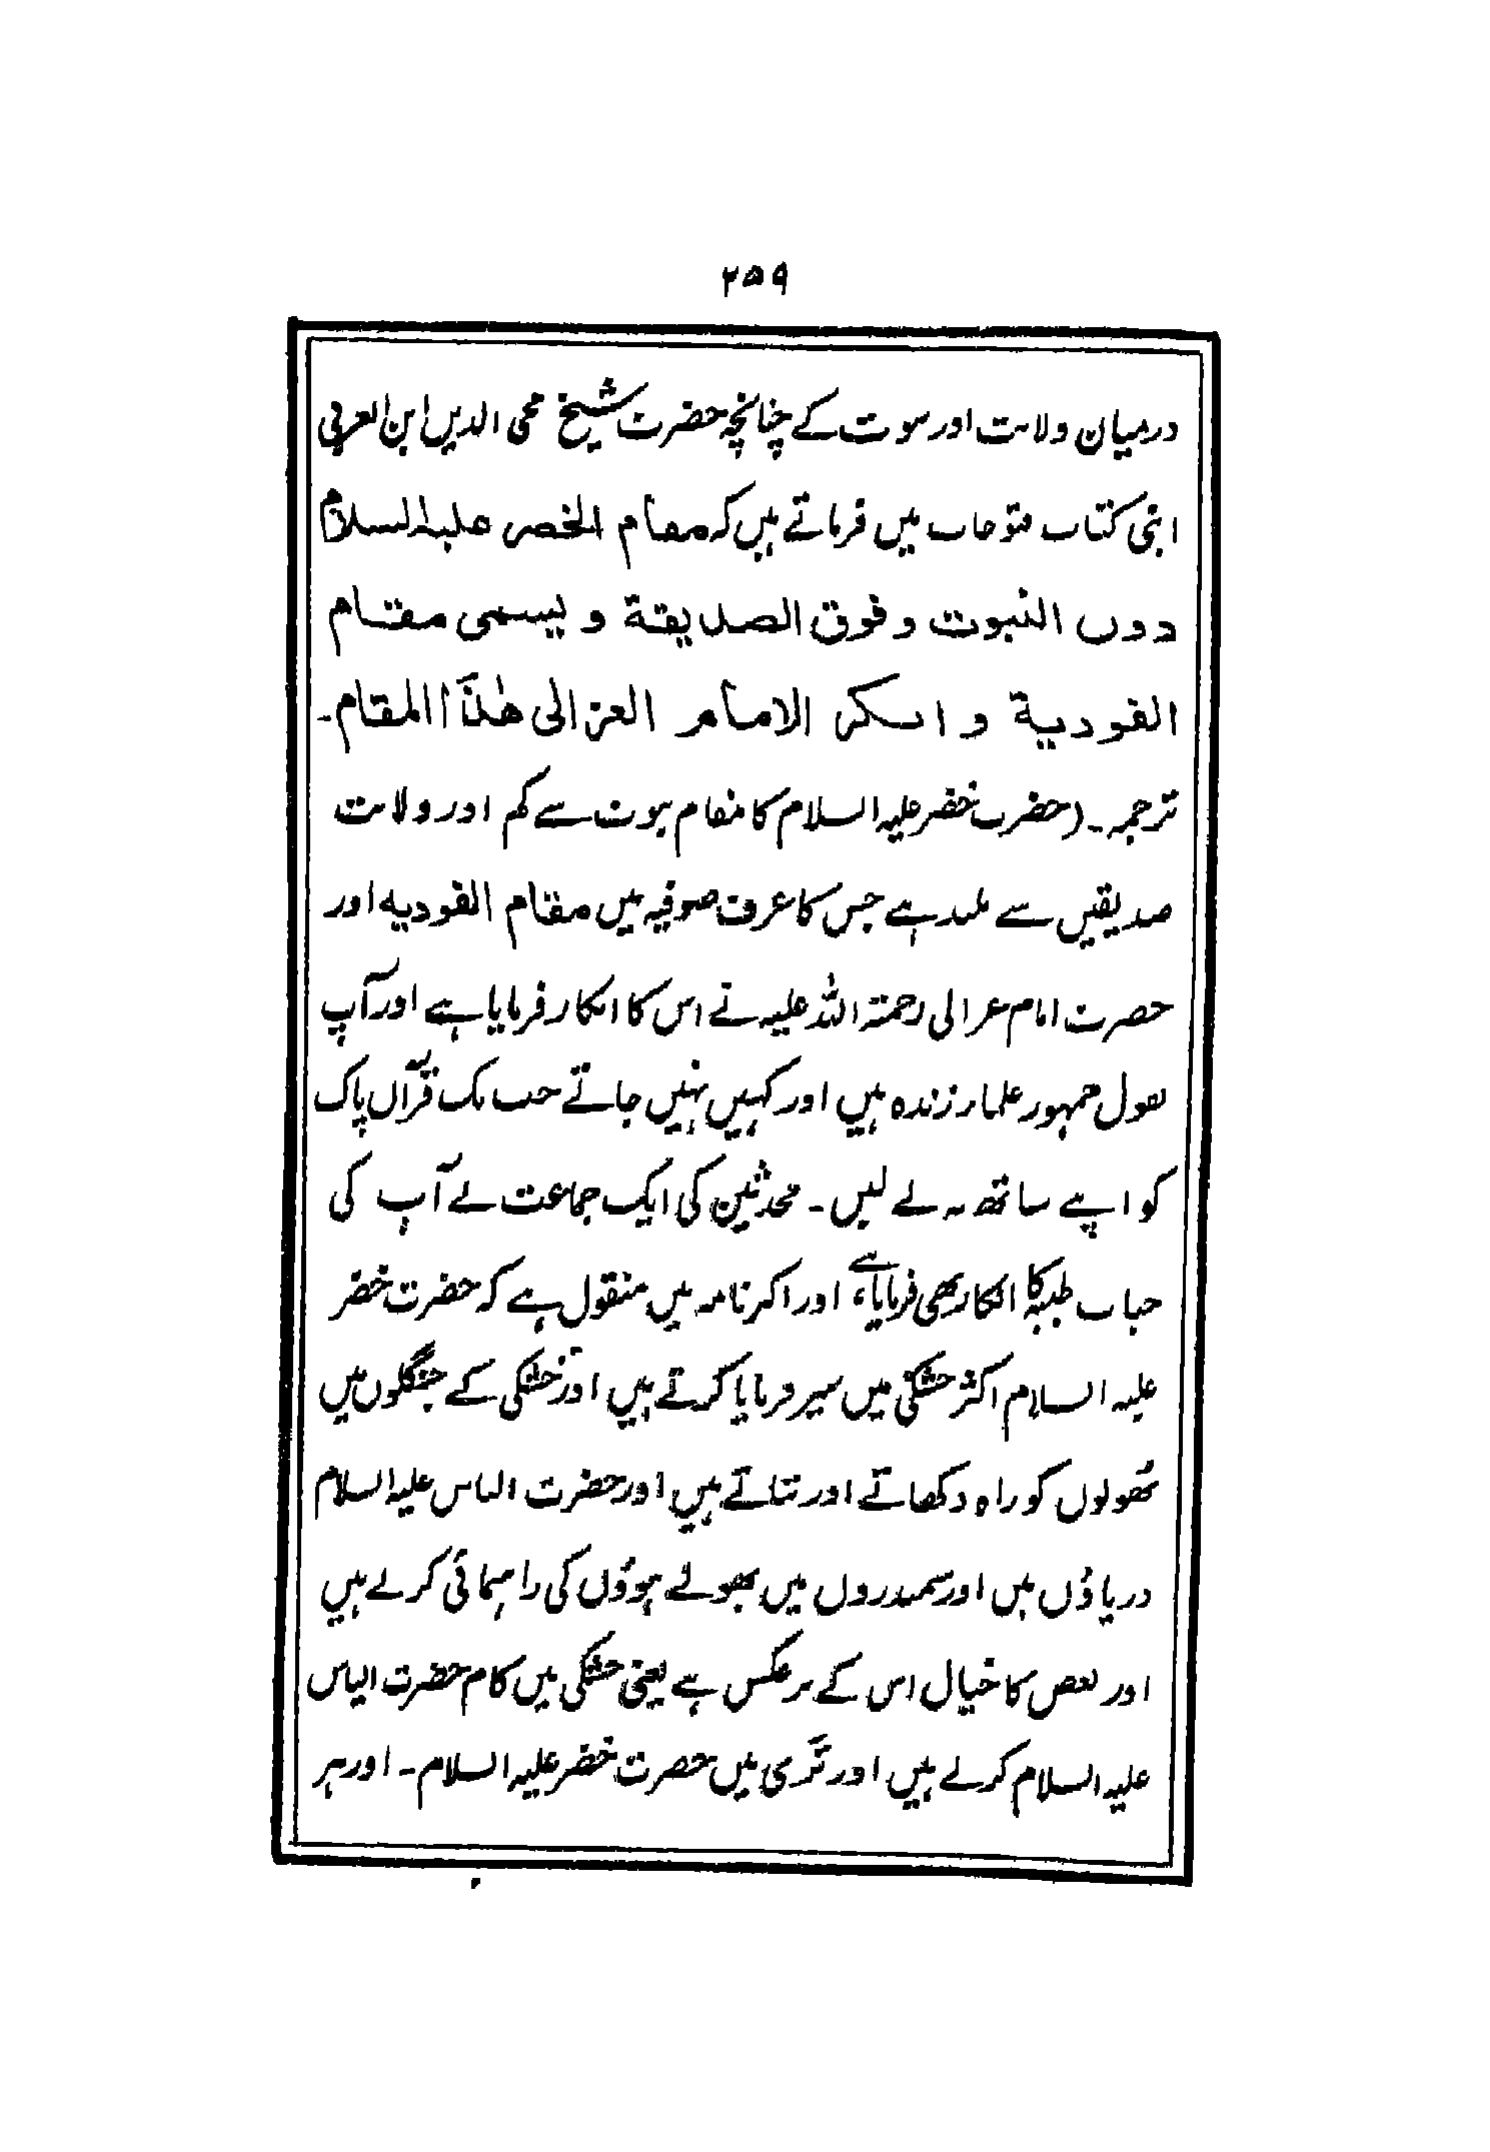 ۲۵۹
درمیان ولایت اور نبوت کے چنانچہ حضرت شیخ محی الدین ابن العربی
اپنی کتاب فتوحات میں فرماتے ہیں کہ مقام الخضر علیہ السلام
دون النبوت و فوق الصدیقة و یسمی مقام
القودیة و انکر الامام الغزالی ھٰذا المقام۔
ترجمہ۔ (حضرت خضر علیہ السلام کا مقام نبوت سے کم اور ولایت
صدیقیں سے بلند ہے جس کا عرف صوفیہ میں مقام القودیہ اور
حضرت امام غزالی رحمتہ اللہ علیہ نے اس کا انکار فرمایا ہے اور آپ
بقول جمہور علماء زندہ ہیں اور کہیں نہیں جاتے جب تک قرآن پاک
کو اپنے ساتھ نہ لے لیں۔ محدثین کی ایک جماعت نے آپ کی
حیات طیبہ کا انکار بھی فرمایا ہے، اور اکبر نامہ میں منقول ہے کہ حضرت خضر
علیہ السلام اکثر خشکی میں سیر فرمایا کرتے ہیں اور خشکی کے جنگلوں میں
بھولوں کو راہ دکھاتے اور بتاتے ہیں اور حضرت الیاس علیہ السلام
دریاؤں میں اور سمندروں میں بھولے ہوؤں کی راہنمائی کرتے ہیں
اور بعض کا خیال اس کے برعکس ہے یعنی خشکی میں کام حضرت الیاس
علیہ السلام کرتے ہیں اور تری میں حضرت خضر علیہ السلام۔ اور ہر